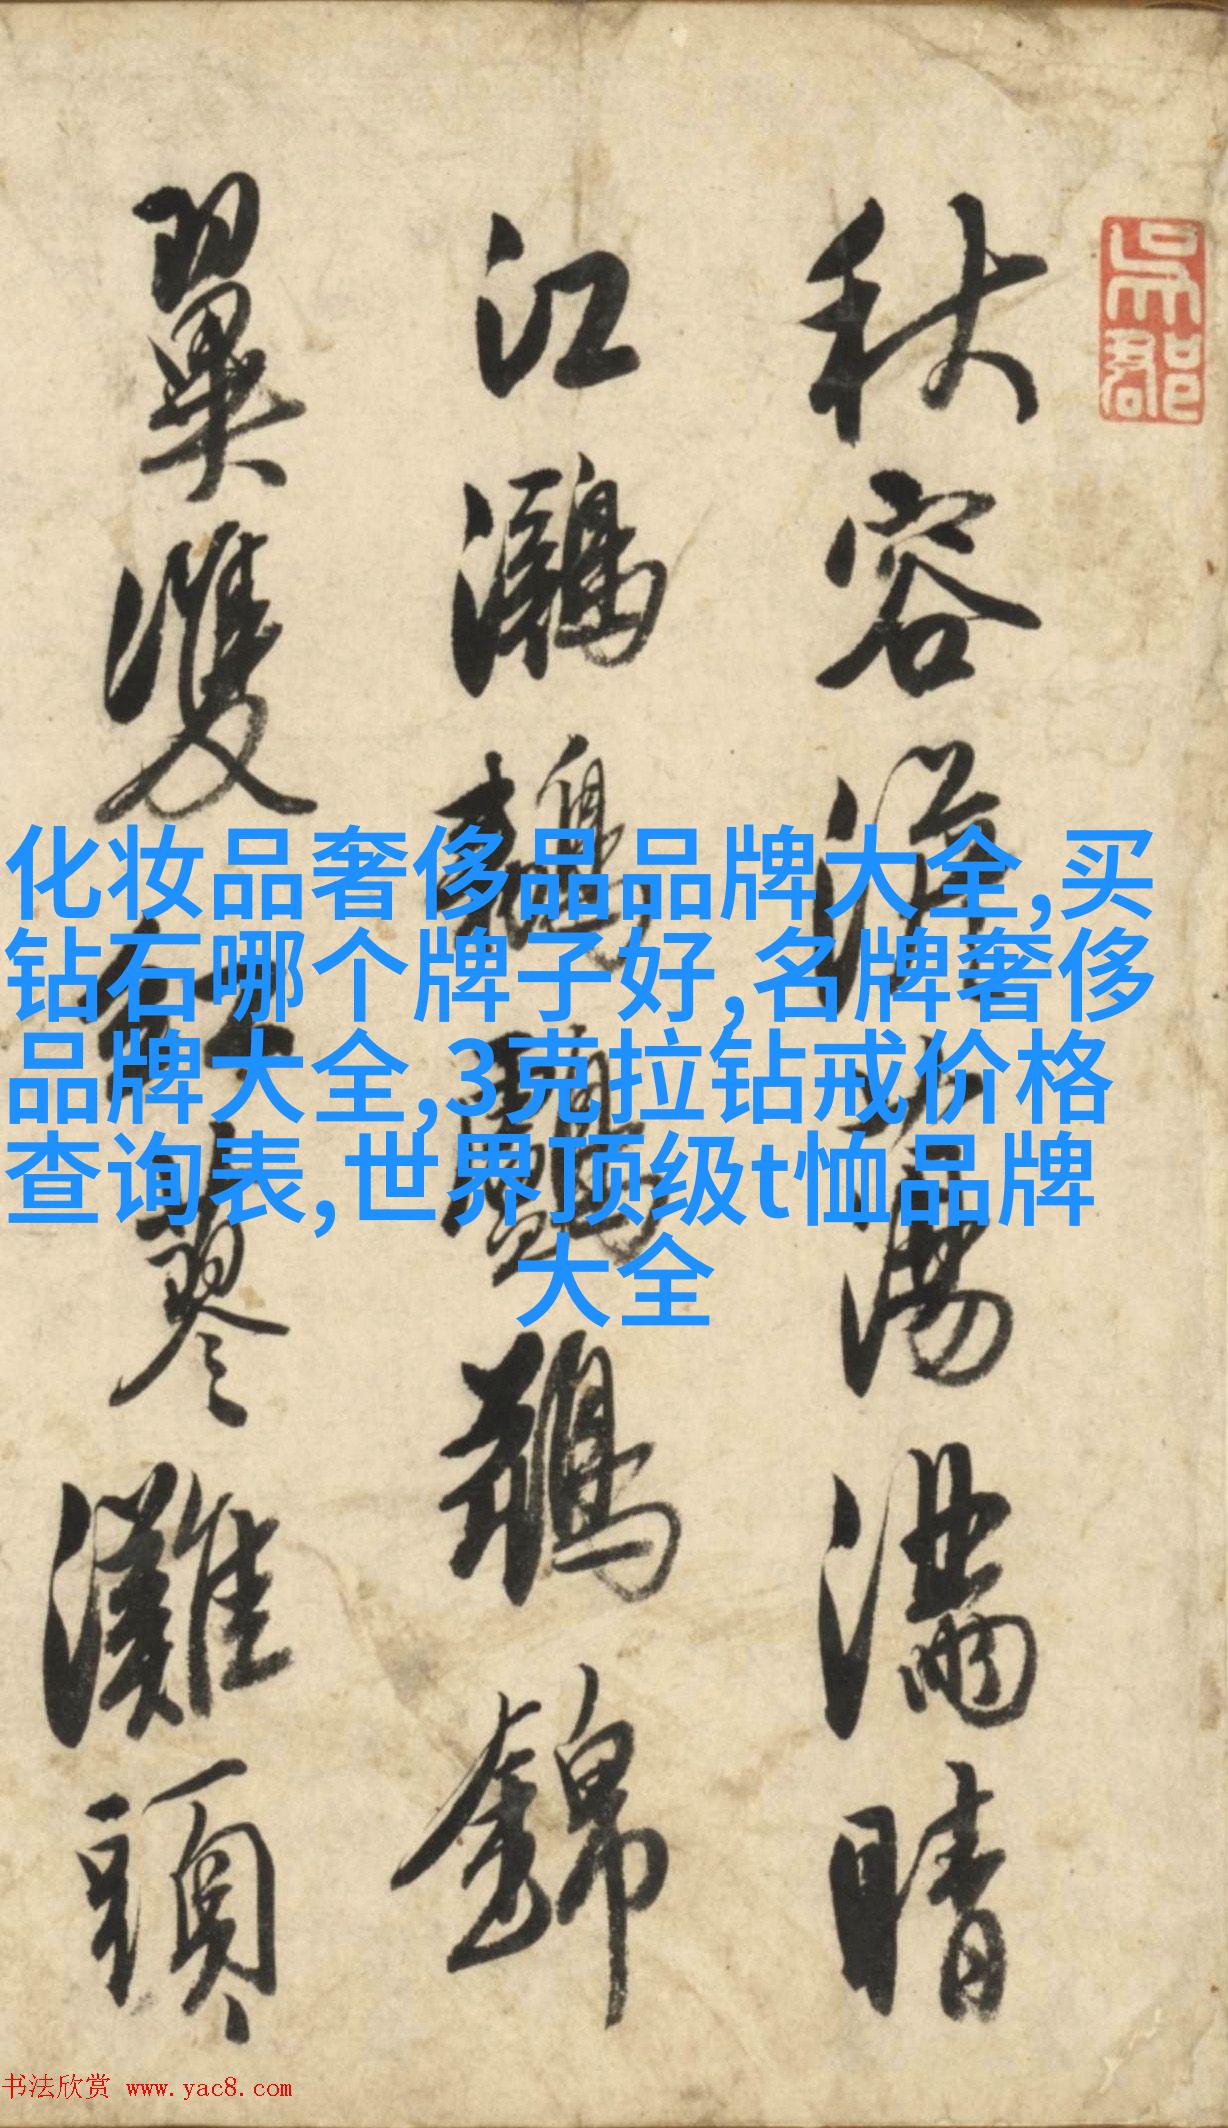 秋容澹蕩滿晴
江鸂鶒
鵝錦
翼雙紅蓼灘頭
吳郡
化妆品奢侈品品牌大全,买
钻石哪个牌子好,名牌奢侈
品牌大全,3克拉钻戒价格
查询表,世界顶级t恤品牌
大全
书法欣赏 www.yac8.com